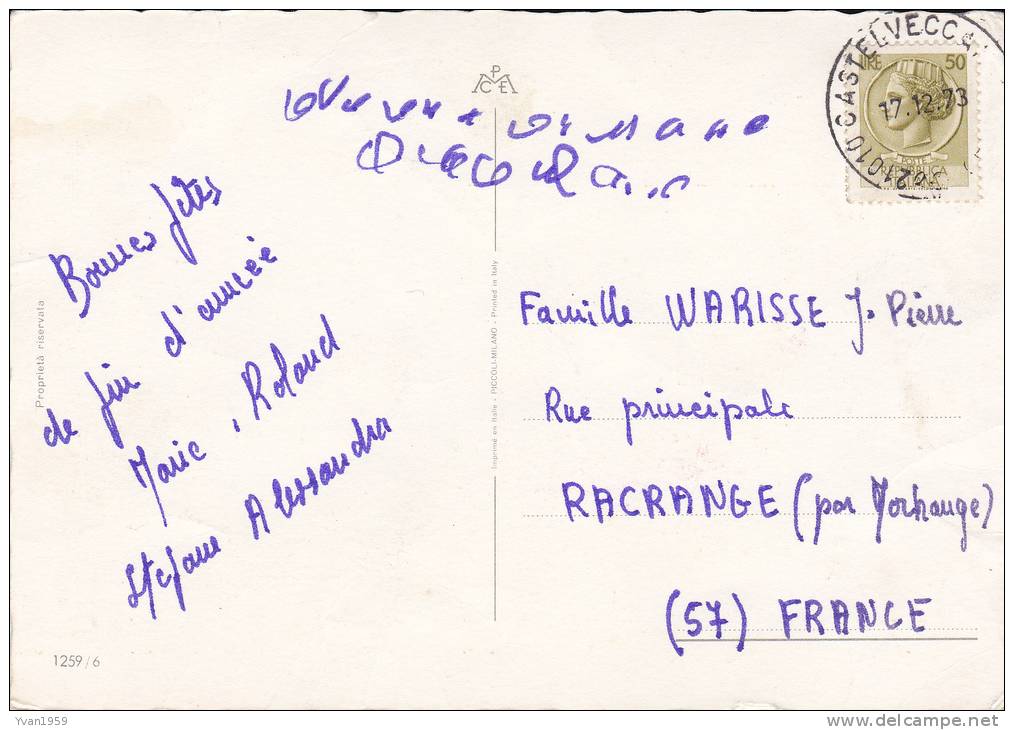 P
M
C E
LIRE 50
CASTELVECCA
17.12.73
21010
POSTE
Bonnes fêtes
de fin d'année
Marie, Roland
Stefane Alessandra
Famille WARISSE J. Pierre
Rue principale
RACRANGE (par Morhange)
(57) FRANCE
Proprietà riservata
Imprimé en Italie - PICCOLI-MILANO - Printed in Italy
1259/6
Yvan1959
delcampe.net